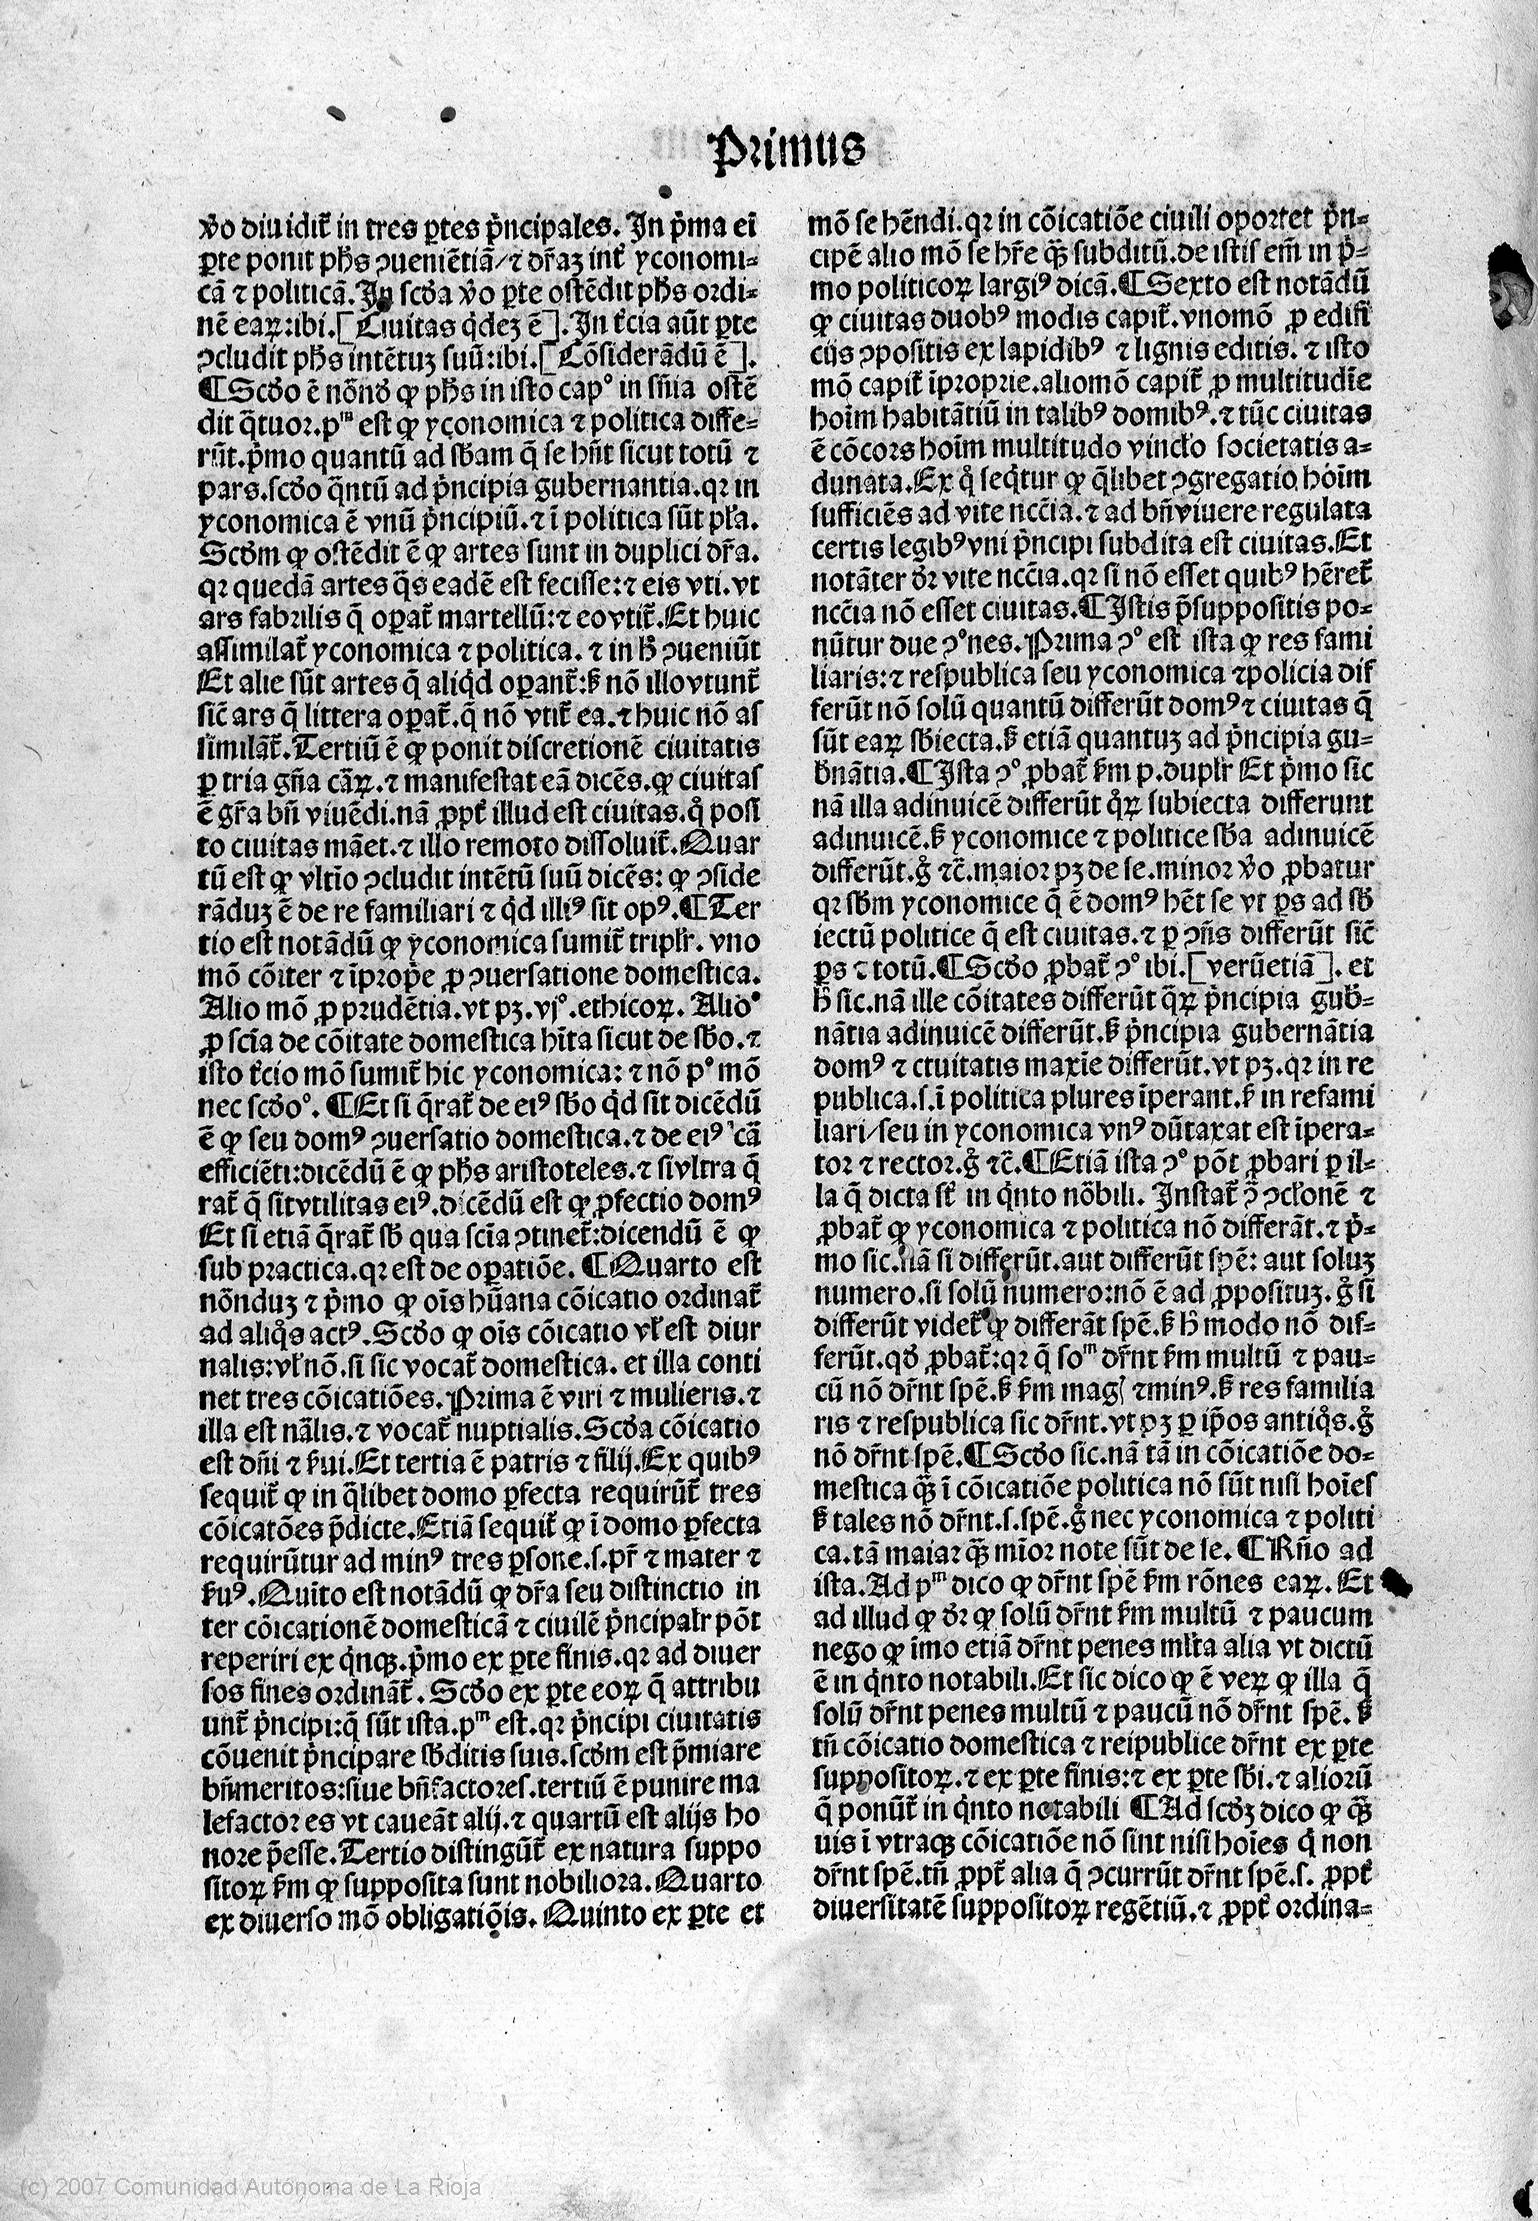 Primus
v̄o diuidit̃ in tres ꝑtes p̃ncipales. In p̃ma ei᷒
ꝑte ponit ph̃s ꝯueniẽtiã/⁊ dr̃aʒ int̃ yconomi-
cã ⁊ politicã. In scḋa v̄o ꝑte ostẽdit ph̃s ordi-
nẽ eaꝝ:ibi.[Ciuitas q̇dez ẽ]. In t̃cia aũt ꝑte
ꝯcludit ph̃s intẽtuʒ suũ:ibi.[Cõsiderãdũ ẽ].
¶Scḋo ẽ nõnḋ ꝙ ph̃s in isto cap° in sñia ostẽ
dit q̃tuor.pᵐ est ꝙ yconomica ⁊ politica diffe-
rũt.p̃mo quantũ ad sb̃am q̃ se hñt sicut totũ ⁊
pars.scḋo q̃ntũ ad p̃ncipia gubernantia.qꝛ in
yconomica ẽ vnũ p̃ncipiũ.⁊ ĩ politica sũt pła.
Scḋm ꝙ ostẽdit ẽ ꝙ artes sunt in duplici dr̃a.
qꝛ quedã artes q̃s eadẽ est fecisse:⁊ eis vti.vt
ars fabrilis q̃ oꝑat̃ martellũ:⁊ eo vtit̃.Et huic
assimilat̃ yconomica ⁊ politica. ⁊ in h̃ ꝯueniũt
Et alie sũt artes q̃ aliq̇d oꝑant̃:ß nõ illo vtunt̃
sic̃ ars q̃ littera oꝑat̃.q̃ nõ vtit̃ ea.⁊ huic nõ as
similãt̃.Tertiũ ẽ ꝙ ponit discretionẽ ciuitatis
ꝑ tria gñа cãꝝ.⁊ manifestat eã dicẽs.ꝙ ciuitas
ẽ gr̃a bñ viuẽdi.nã ꝓpt̃ illud est ciuitas.q̊ posi
to ciuitas mãet.⁊ illo remoto dissoluit̃.Quar
tũ est ꝙ vltĩo ꝯcludit intẽtũ suũ dicẽs: ꝙ ꝯside
rãduʒ ẽ de re familiari ⁊ q̇d illiꝰ sit opꝰ.¶Ter
tio est notãdũ ꝙ yconomica sumit̃ tripłr. vno
mõ cõiter ⁊ ĩprop̃e ꝓ ꝯuersatione domestica.
Alio mõ ꝓ prudẽtia.vt pʒ.vj°.ethicoꝝ. Alio°
ꝓ scĩa de cõitate domestica hĩta sicut de sb̃o.⁊
isto t̃cio mõ sumit̃ hic yconomica: ⁊ nõ p° mõ
nec scḋo°. ¶Et si q̃rat̃ de eiꝰ sb̃o q̇d sit dicẽdũ
ẽ ꝙ seu domꝰ ꝯuersatio domestica.⁊ de eiꝰ cã
efficiẽti:dicẽdũ ẽ ꝙ ph̃s aristoteles.⁊ si vltra q̃
rat̃ q̃ sit vtilitas eiꝰ.dicẽdũ est ꝙ ꝑfectio domꝰ
Et si etiã q̃rat̃ sb̃ qua scĩa ꝯtinet̃:dicendũ ẽ ꝙ
sub practica.qꝛ est de oꝑatiõe. ¶Quarto est
nõnduʒ ⁊ p̃mo ꝙ oĩs hũana cõicatio ordinat̃
ad aliq̊s actꝰ.Scḋo ꝙ oĩs cõicatio vł est diur
nalis:vł nõ.si sic vocat̃ domestica. et illa conti
net tres cõicatiões.Prima ẽ viri ⁊ mulieris.⁊
illa est nãlis.⁊ vocat̃ nuptialis.Scḋa cõicatio
est dñi ⁊ ẞui.Et tertia ẽ patris ⁊ filij.Ex quibꝰ
sequit̃ ꝙ in q̃libet domo ꝑfecta requirũt̃ tres
cõicatões p̃dicte.Etiã sequit̃ ꝙ ĩ domo ꝑfecta
requirũtur ad minꝰ tres ꝑsone.s.pr̃ ⁊ mater ⁊
ẞuꝰ.Quĩto est notãdũ ꝙ dr̃a seu distinctio in
ter cõicationẽ domesticã ⁊ ciuilẽ p̃ncipałr põt
reperiri ex q̇nqꝫ.p̃mo ex ꝑte finis.qꝛ ad diuer
sos fines ordinãt̃. Scḋo ex ꝑte eoꝝ q̃ attribu
unt̃ p̃ncipi:q̃ sũt ista.pᵐ est.qꝛ p̃ncipi ciuitatis
cõuenit p̃ncipare sb̃ditis suis.scḋm est p̃miare
bñmeritos:siue bñfactores.tertiũ ẽ punire ma
lefactores vt caueãt alij.⁊ quartũ est alijs ho
nore p̃esse.Tertio distingũt̃ ex natura suppo
sitoꝝ ẞm ꝙ supposita sunt nobiliora.Quarto
ex diuerso mõ obligatiõis. Quinto ex ꝑte et
mõ se hẽndi.qꝛ in cõicatiõe ciuili oportet p̃n-
cipẽ alio mõ se hr̃e q̃ꝫ subditũ.de istis em̃ in p̃-
mo politicoꝝ largiꝰ dicã.¶Sexto est notãdũ
ꝙ ciuitas duobꝰ modis capit̃.vnomõ ꝓ edifi
cijs ꝯpositis ex lapidibꝰ ⁊ lignis editis. ⁊ isto
mõ capit̃ ĩproprie.aliomõ capit̃ ꝓ multitudĩe
hoĩm habitãtiũ in talibꝰ domibꝰ.⁊ tũc ciuitas
ẽ cõcors hoĩm multitudo vincło societatis a-
dunata.Ex q̊ seq̇tur ꝙ q̃libet ꝯgregatio hoĩm
sufficiẽs ad vite nccĩa.⁊ ad bñ viuere regulata
certis legibꝰ vni p̃ncipi subdita est ciuitas.Et
notãter ḋr vite nccĩa.qꝛ si nõ esset quibꝰ hẽret̃
nccĩa nõ esset ciuitas.¶Istis p̃suppositis po-
nũtur due ꝯ°nes.Prima ꝯ° est ista ꝙ res fami
liaris:⁊ respublica seu yconomica ⁊policia dif
ferũt nõ solũ quantũ differũt domꝰ ⁊ ciuitas q̃
sũt eaꝝ sb̃iecta.ß etiã quantuʒ ad p̃ncipia gu-
b̃nãtia.¶Ista ꝯ° ꝓbat̃ ẞm p.duplr̃ Et p̃mo sic
nã illa adinuicẽ differũt q̊ꝝ subiecta differunt
adinuicẽ.ß yconomice ⁊ politice sb̃a adinuicẽ
differũt.g̊ ⁊c̃.maior pʒ de se.minor v̄o ꝓbatur
qꝛ sb̃m yconomice q̃ ẽ domꝰ hẽt se vt ꝑs ad sb̃
iectũ politice q̃ est ciuitas.⁊ ꝑ ꝯñs differũt sic̃
ꝑs ⁊ totũ.¶Scḋo ꝓbat̃ ꝯ° ibi.[verũetiã]. et
h̃ sic.nã ille cõitates differũt q̃ꝝ p̃ncipia gub̃-
nãtia adinuicẽ differũt.ß p̃ncipia gubernãtia
domꝰ ⁊ ctuitatis maxĩe differũt.vt pʒ.qꝛ in re
publica.s.ĩ politica plures ĩperant.ß in refami
liari/seu in yconomica vnꝰ dũtaxat est ĩpera-
tor ⁊ rector.g̊ ⁊c̃.¶Etiã ista ꝯ° põt ꝓbari ꝑ il-
la q̃ dicta st̃ in q̇nto nõbili. Instat̃ ꝯ̃ ꝯcłonẽ ⁊
ꝓbat̃ ꝙ yconomica ⁊ politica nõ differãt.⁊ p̃-
mo sic.nã si differũt.aut differũt spẽ: aut soluʒ
numero.si solũ numero:nõ ẽ ad ꝓpositũʒ.g̊ si
differũt videt̃ ꝙ differãt spẽ.ß h̃ modo nõ dif-
ferũt.qḋ ꝓbat̃:qꝛ q̃ soᵐ dr̃nt ẞm multũ ⁊ pau-
cũ nõ dr̃nt spẽ.ß ẞm magꝭ ⁊minꝰ.ß res familia
ris ⁊ respublica sic dr̃nt.vt pʒ ꝑ ip̃os antiq̊s.g̊
nõ dr̃nt spẽ.¶Scḋo sic.nã tã in cõicatiõe do-
mestica q̃ꝫ ĩ cõicatiõe politica nõ sũt nisi hoĩes
ß tales nõ dr̃nt.s.spẽ.g̊ nec yconomica ⁊ politi
ca.tã maiar q̃ꝫ mĩor note sũt de se. ¶Rñо ad
ista.Ad pᵐ dico ꝙ dr̃nt spẽ ẞm rõnes eaꝝ. Et
ad illud ꝙ ḋr ꝙ solũ dr̃nt ẞm multũ ⁊ paucum
nego ꝙ ĩmo etiã dr̃nt penes mł̃ta alia vt dictũ
ẽ in q̇nto notabili.Et sic dico ꝙ ẽ veꝝ ꝙ illa q̃
solũ dr̃nt penes multũ ⁊ paucũ nõ dr̃nt spẽ. ß
tñ cõicatio domestica ⁊ reipublice dr̃nt ex ꝑte
suppositoꝝ.⁊ ex ꝑte finis:⁊ ex ꝑte sb̃i.⁊ aliorũ
q̃ ponũt̃ in q̇nto notabili ¶Ad scḋʒ dico ꝙ q̃ꝫ
uis ĩ vtraqꝫ cõicatiõe nõ sint nisi hoĩes q̇ non
dr̃nt spẽ.tñ ꝓpt̃ alia q̃ ꝯcurrũt dr̃nt spẽ.s. ꝓpt̃
diuersitatẽ suppositoꝝ regẽtiũ.⁊ ꝓpt̃ ordina-
(c) 2007 Comunidad Autónoma de La Rioja